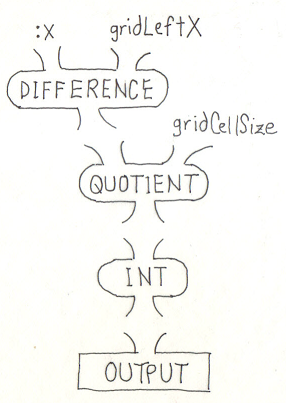 :x gridLeftX
DIFFERENCE
gridCellSize
QUOTIENT
INT
OUTPUT